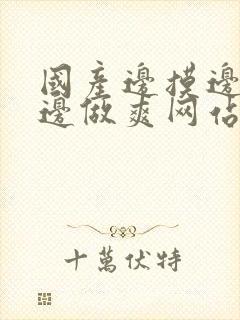 國産邊摸邊
邊做爽网佔
十萬伏特